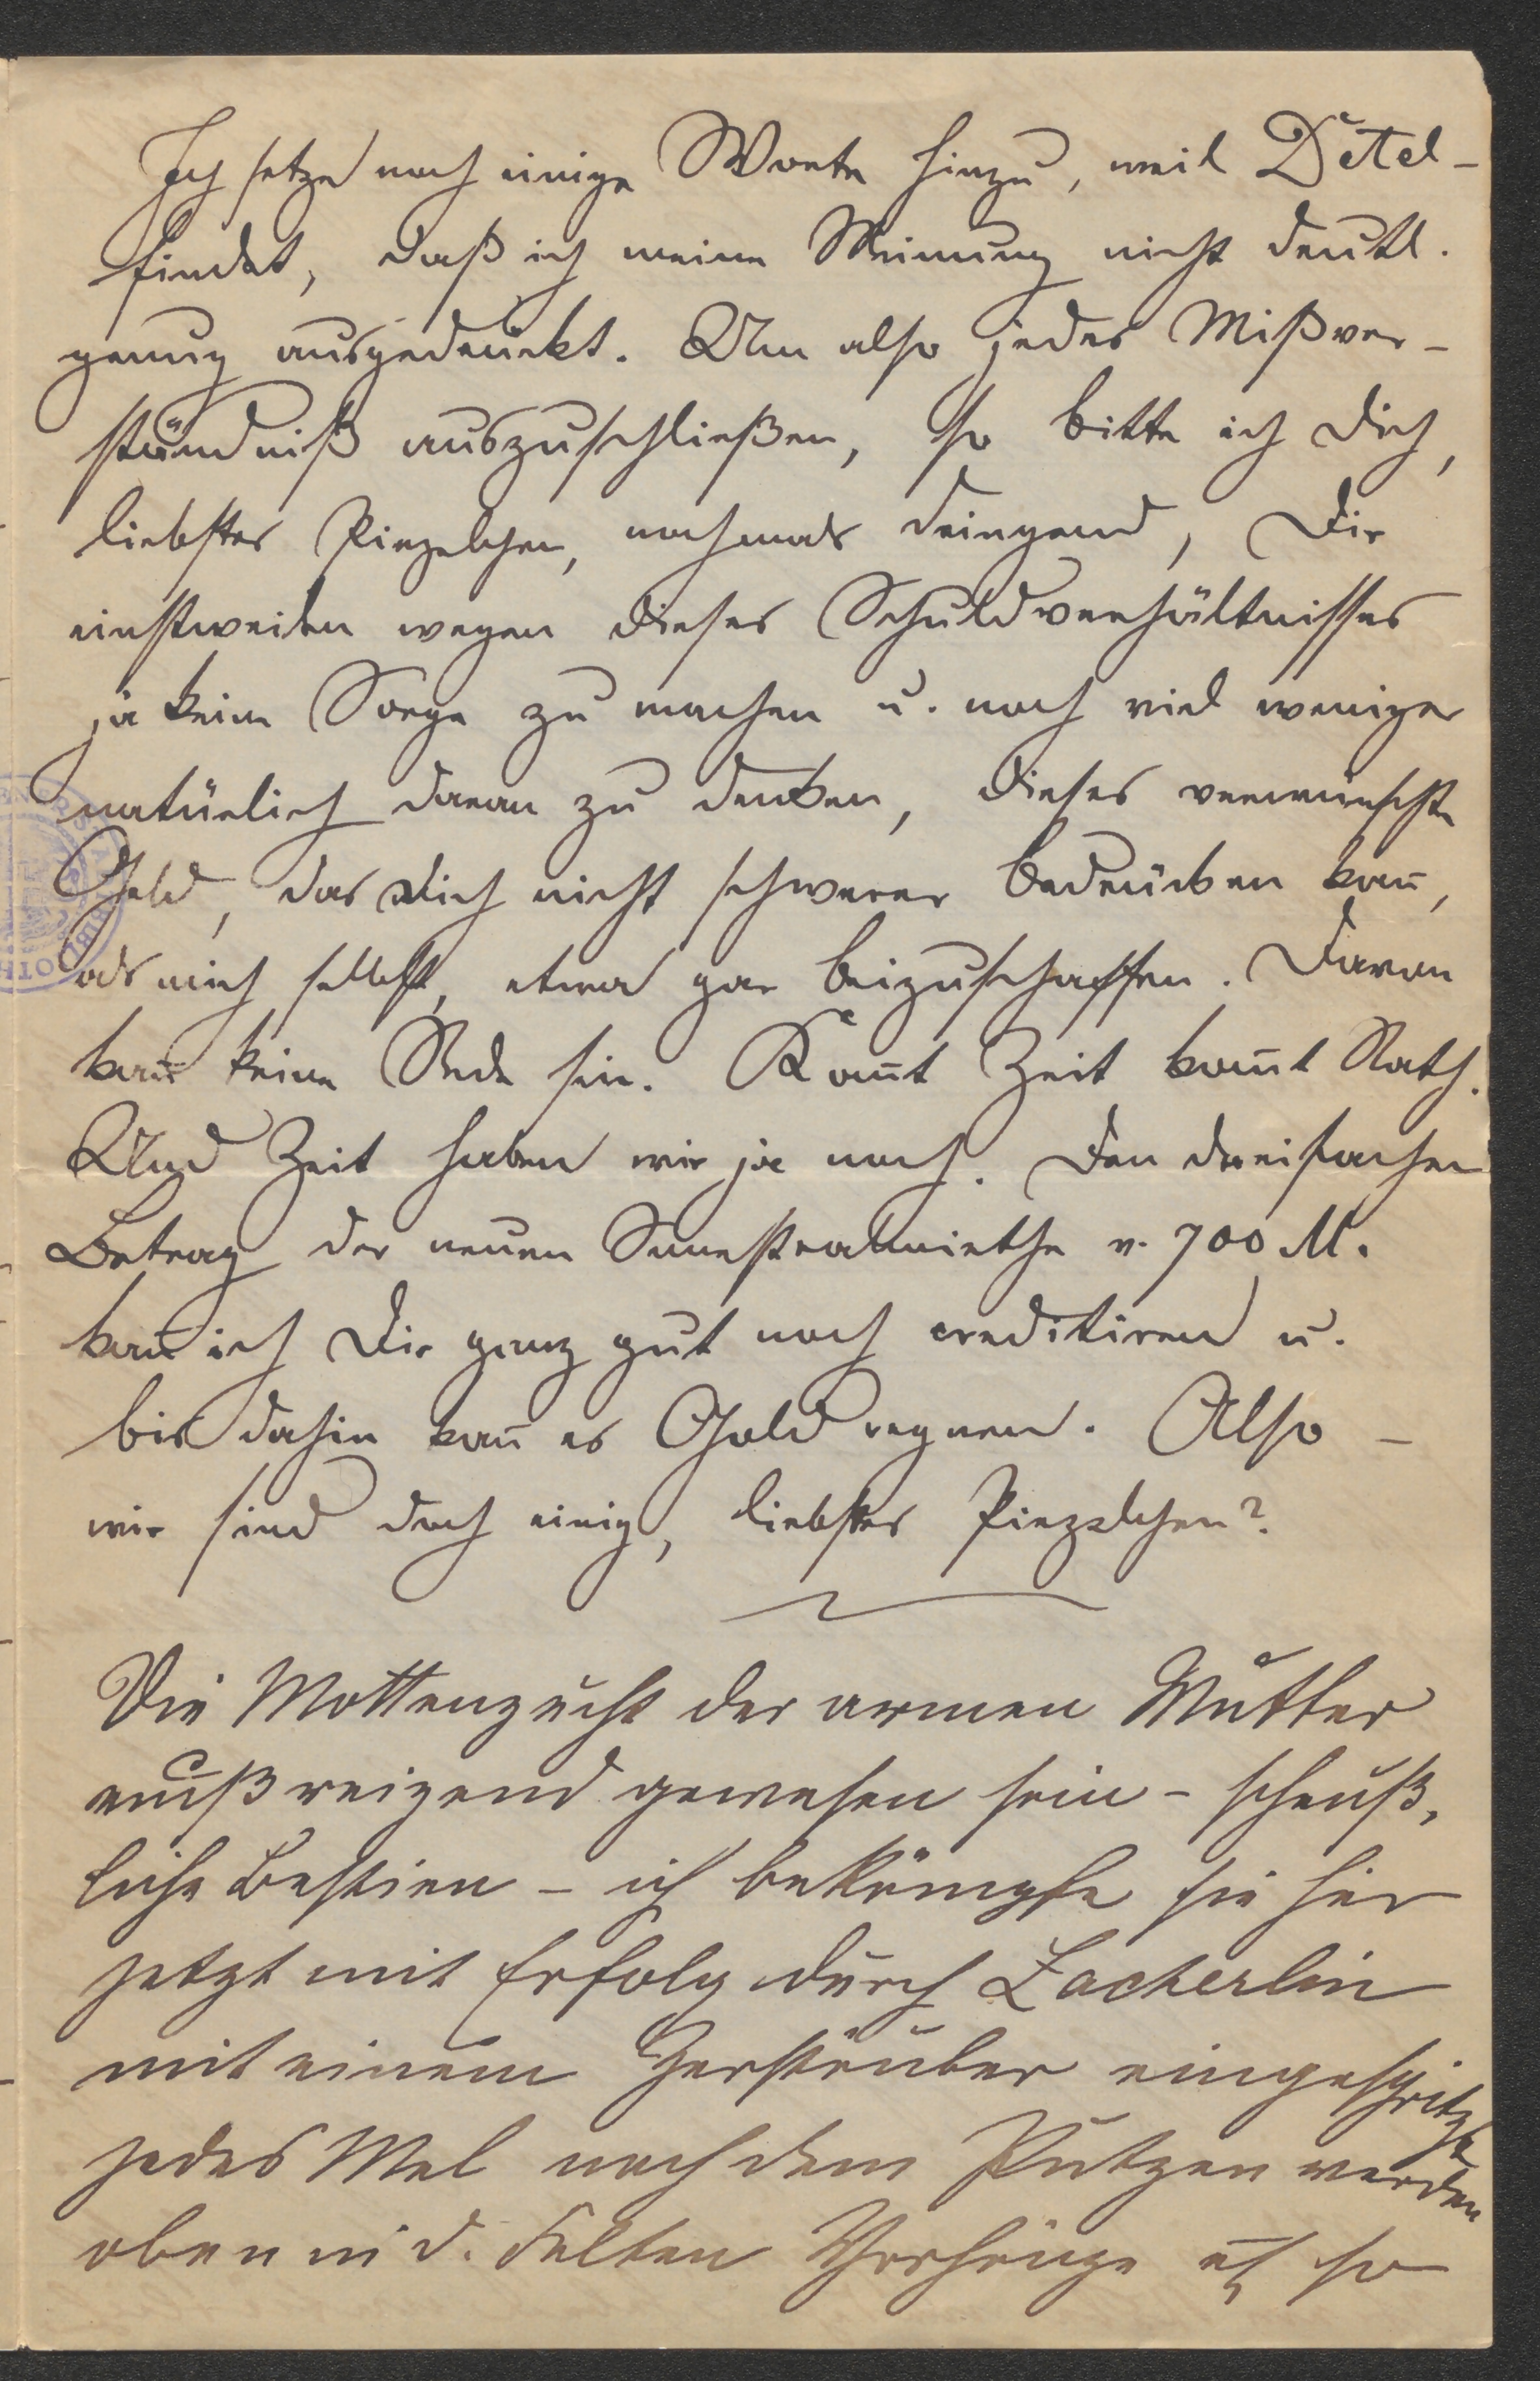 Ich setze noch einige Worte hinzu, weil Detel-
findet, daß ich meine Meinung nicht deutl.
genug ausgedrückt. Um also jedes Mißver-
ständniß auszuschließen, so bitte ich Dich,
liebster Pinzelchen, nochmals dringend, Dir
einstweilen wegen dieses Schuldverhältnisses
ja keine Sorge zu machen u. noch viel weniger
natürlich daran zu denken, dieses verwünschte
Geld, das Dich nicht schwerer bedrücken kañ,
als mich selbst, etwa gar beizuschaffen. Davon
kañ keine Rede sein. Kom̄t Zeit kom̄t Rath.
Und Zeit haben wir ja noch. Den dreifachen
Betrag der neuen Semestralmiethe v. 700 M.
kañ ich Dir ganz gut noch creditiren u.
bis dahin kañ es Gold regnen. Also –
wir sind doch einig, liebster Pinzelchen?
Die Mottenzucht der armen Mutter
muß reizend gewesen sein – scheuß,
liche Bestien – ich bekämpfe sie hier
jetzt mit Erfolg durch Zacherlin
mit einem Zerstäuber eingespritzt
jedes Mal nach dem Putzen werden
oben in d. Falten Vorhänge etc so